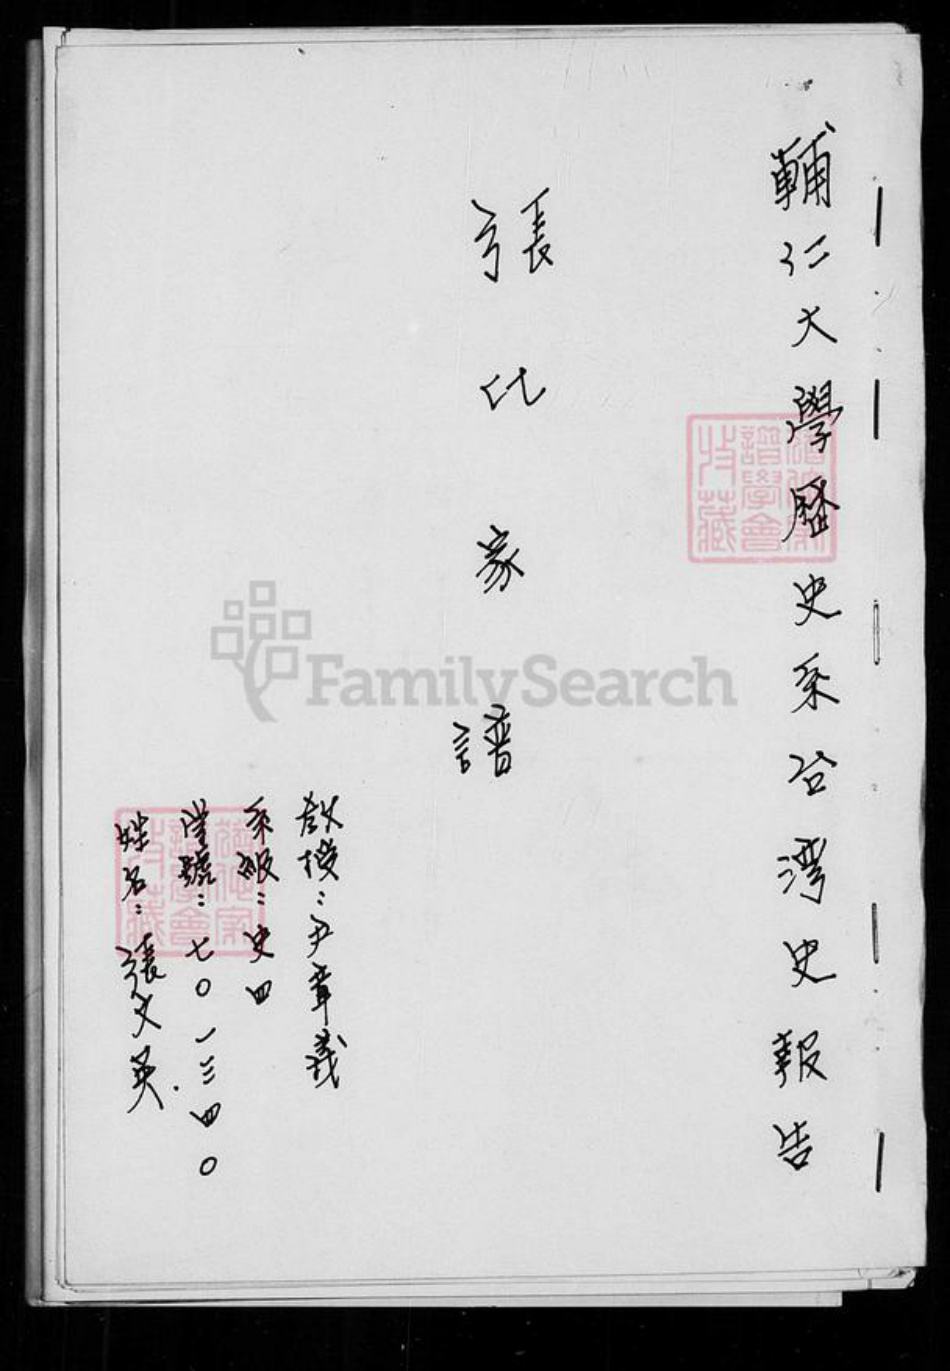 輔仁大學歷史系台灣史報告
張比家譜
教授：尹章義
系級：史四
學號：七〇一三四〇
姓名：張文英.
譜學會
收藏
譜學會
收藏
FamilySearch